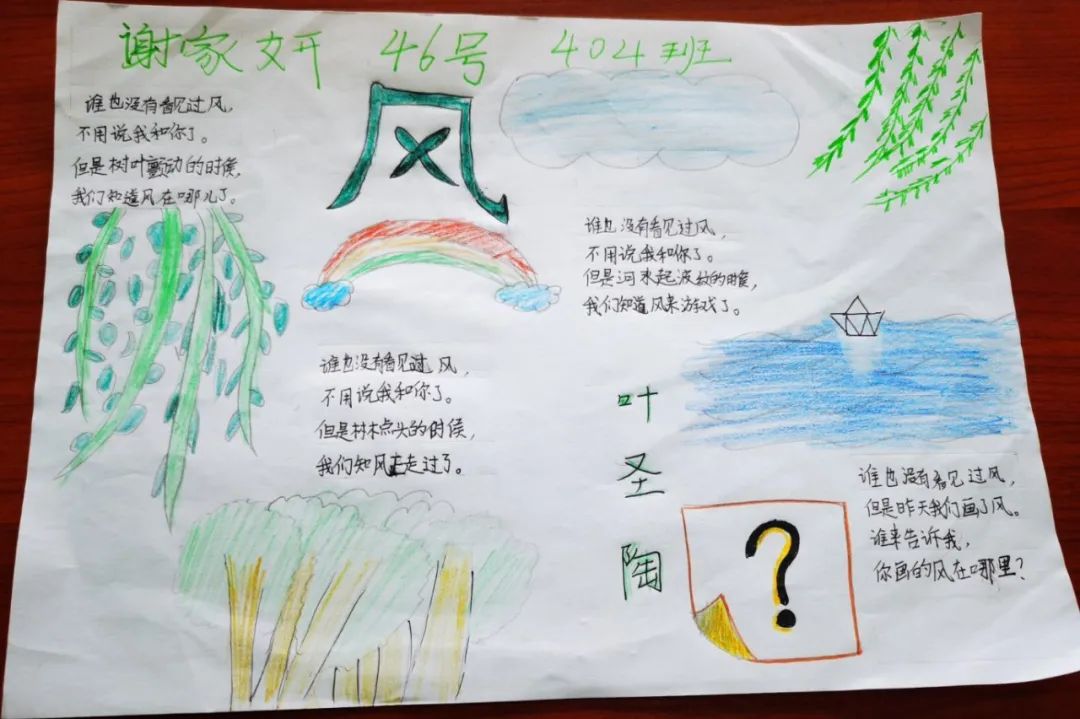 谢家妍 46号 404班
风
谁也没有看见过风，
不用说我和你了。
但是树叶颤动的时候，
我们知道风在哪儿了。
谁也没有看见过风，
不用说我和你了。
但是河水起波纹的时候，
我们知道风来游戏了。
谁也没有看见过风，
不用说我和你了。
但是树木点头的时候，
我们知风正走过了。
叶
圣
陶
谁也没有看见过风，
但是昨天我们画了风。
谁来告诉我，
你画的风在哪里？
?